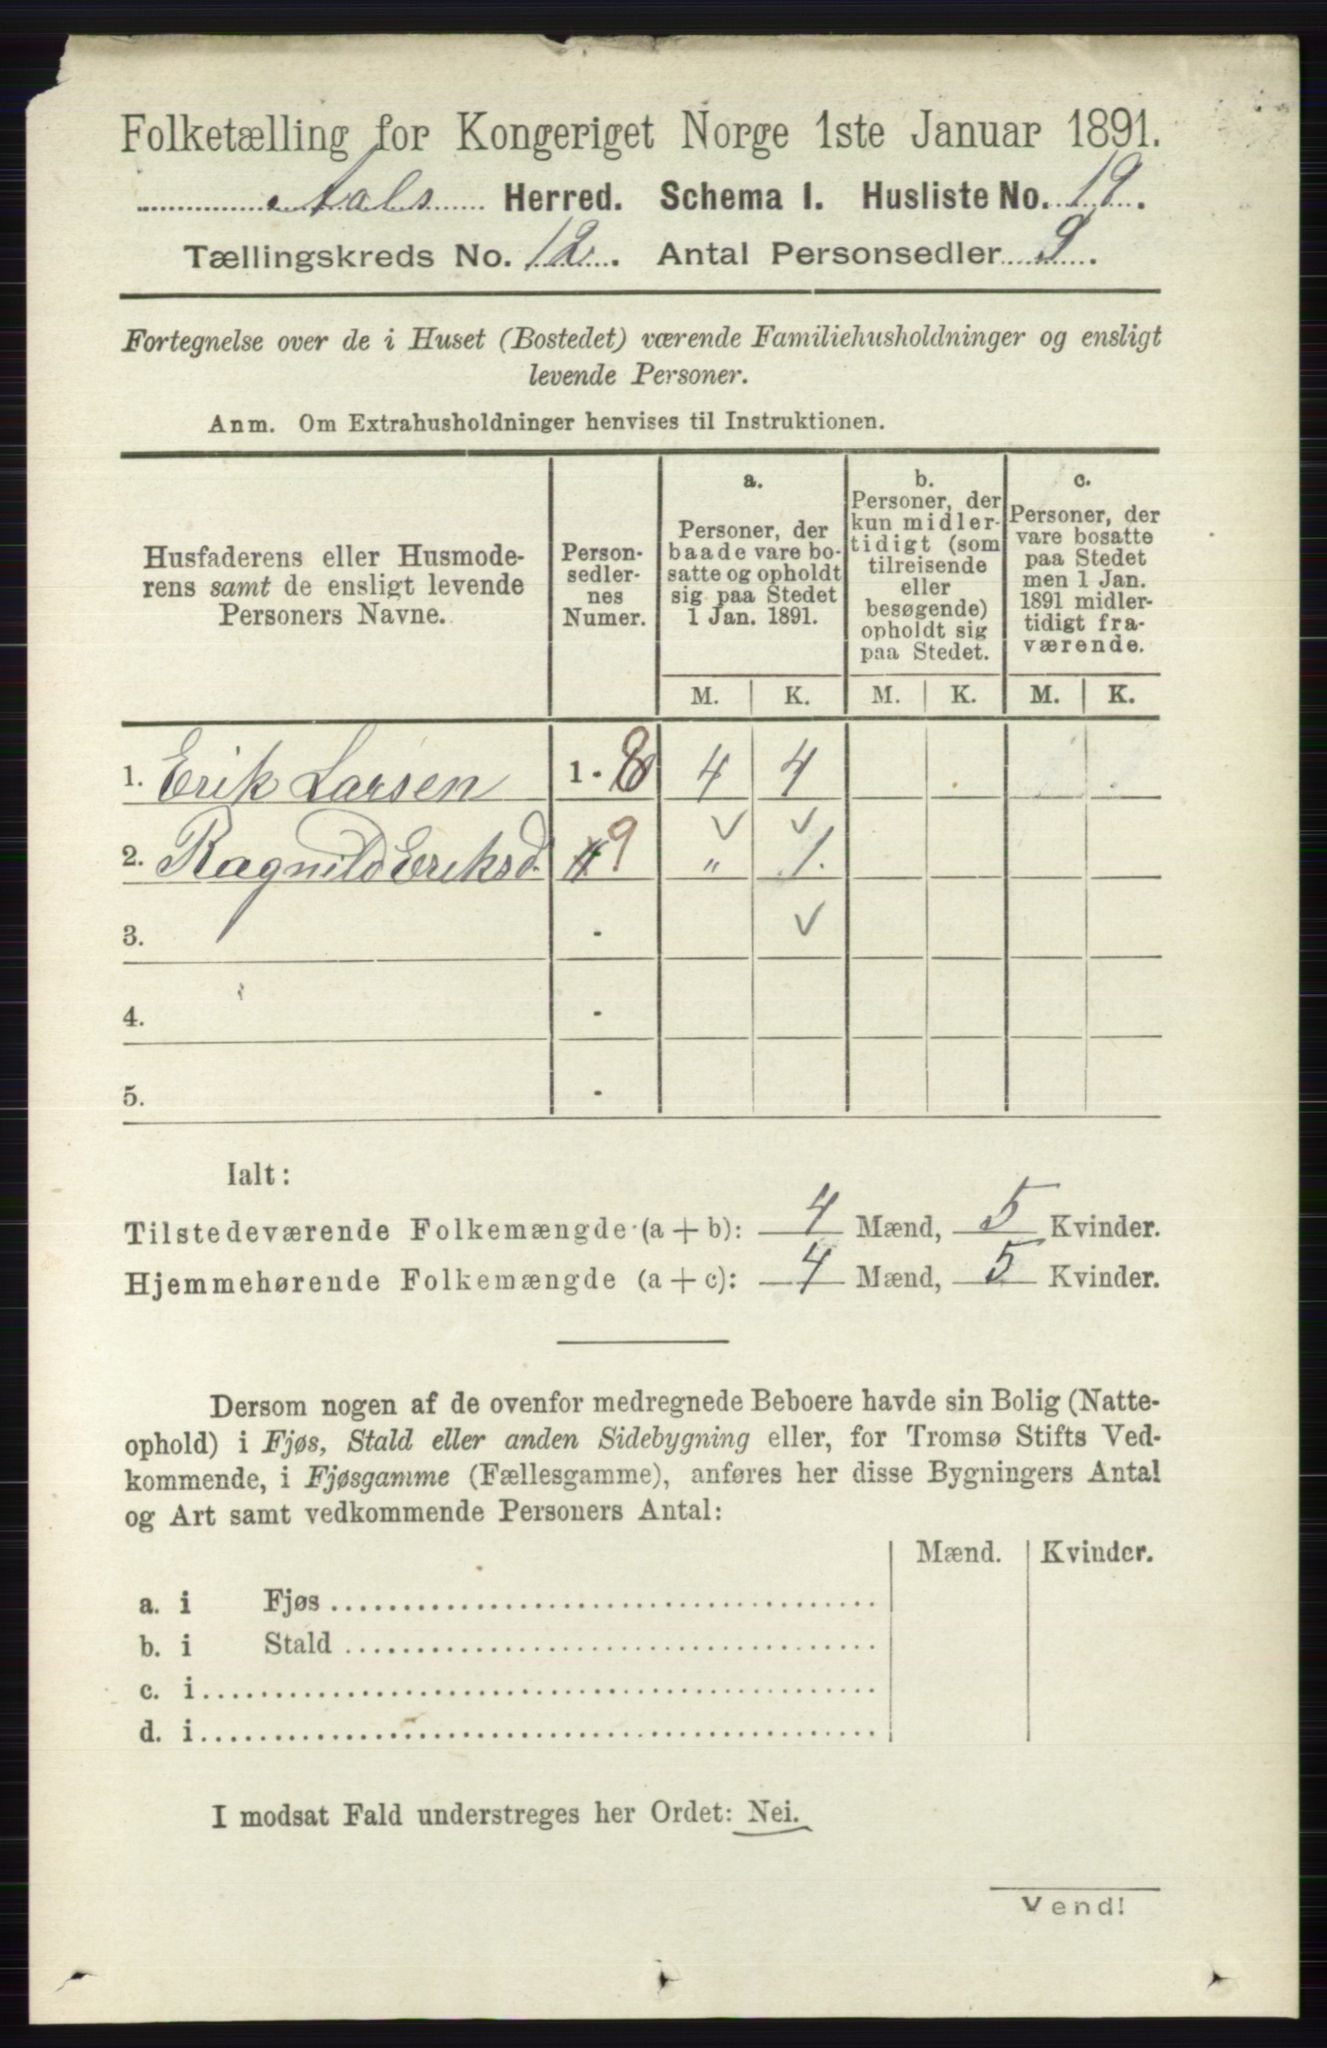 Folketælling for Kongeriget Norge 1ste Januar 1891.
Aals Herred. Schema I. Husliste No. 19.
Tællingskreds No. 12. Antal Personsedler 9.
Fortegnelse over de i Huset (Bostedet) værende Familiehusholdninger og ensligt
levende Personer.
Anm. Om Extrahusholdninger henvises til Instruktionen.
Husfaderens eller Husmode-
rens samt de ensligt levende
Personers Navne.
Person-
sedler-
nes
Numer.
a.
Personer, der
baade vare bo-
satte og opholdt
sig paa Stedet
1 Jan. 1891.
b.
Personer, der
kun midler-
tidigt (som
tilreisende
eller
besøgende)
opholdt sig
paa Stedet.
c.
Personer, der
vare bosatte
paa Stedet
men 1 Jan.
1891 midler-
tidigt fra-
værende.
M. K. M. K. M. K.
1. Erik Larsen 1 - 8 4 4
2. Ragnild Eriksd. 9 „ 1.
3. -
4. -
5. -
Ialt:
Tilstedeværende Folkemængde (a + b): 4 Mænd, 5 Kvinder.
Hjemmehørende Folkemængde (a + c): 4 Mænd, 5 Kvinder.
Dersom nogen af de ovenfor medregnede Beboere havde sin Bolig (Natte-
ophold) i Fjøs, Stald eller anden Sidebygning eller, for Tromsø Stifts Ved-
kommende, i Fjøsgamme (Fællesgamme), anføres her disse Bygningers Antal
og Art samt vedkommende Personers Antal:
Mænd. Kvinder.
a. i Fjøs
b. i Stald
c. i
d. i
I modsat Fald understreges her Ordet: Nei.
Vend!